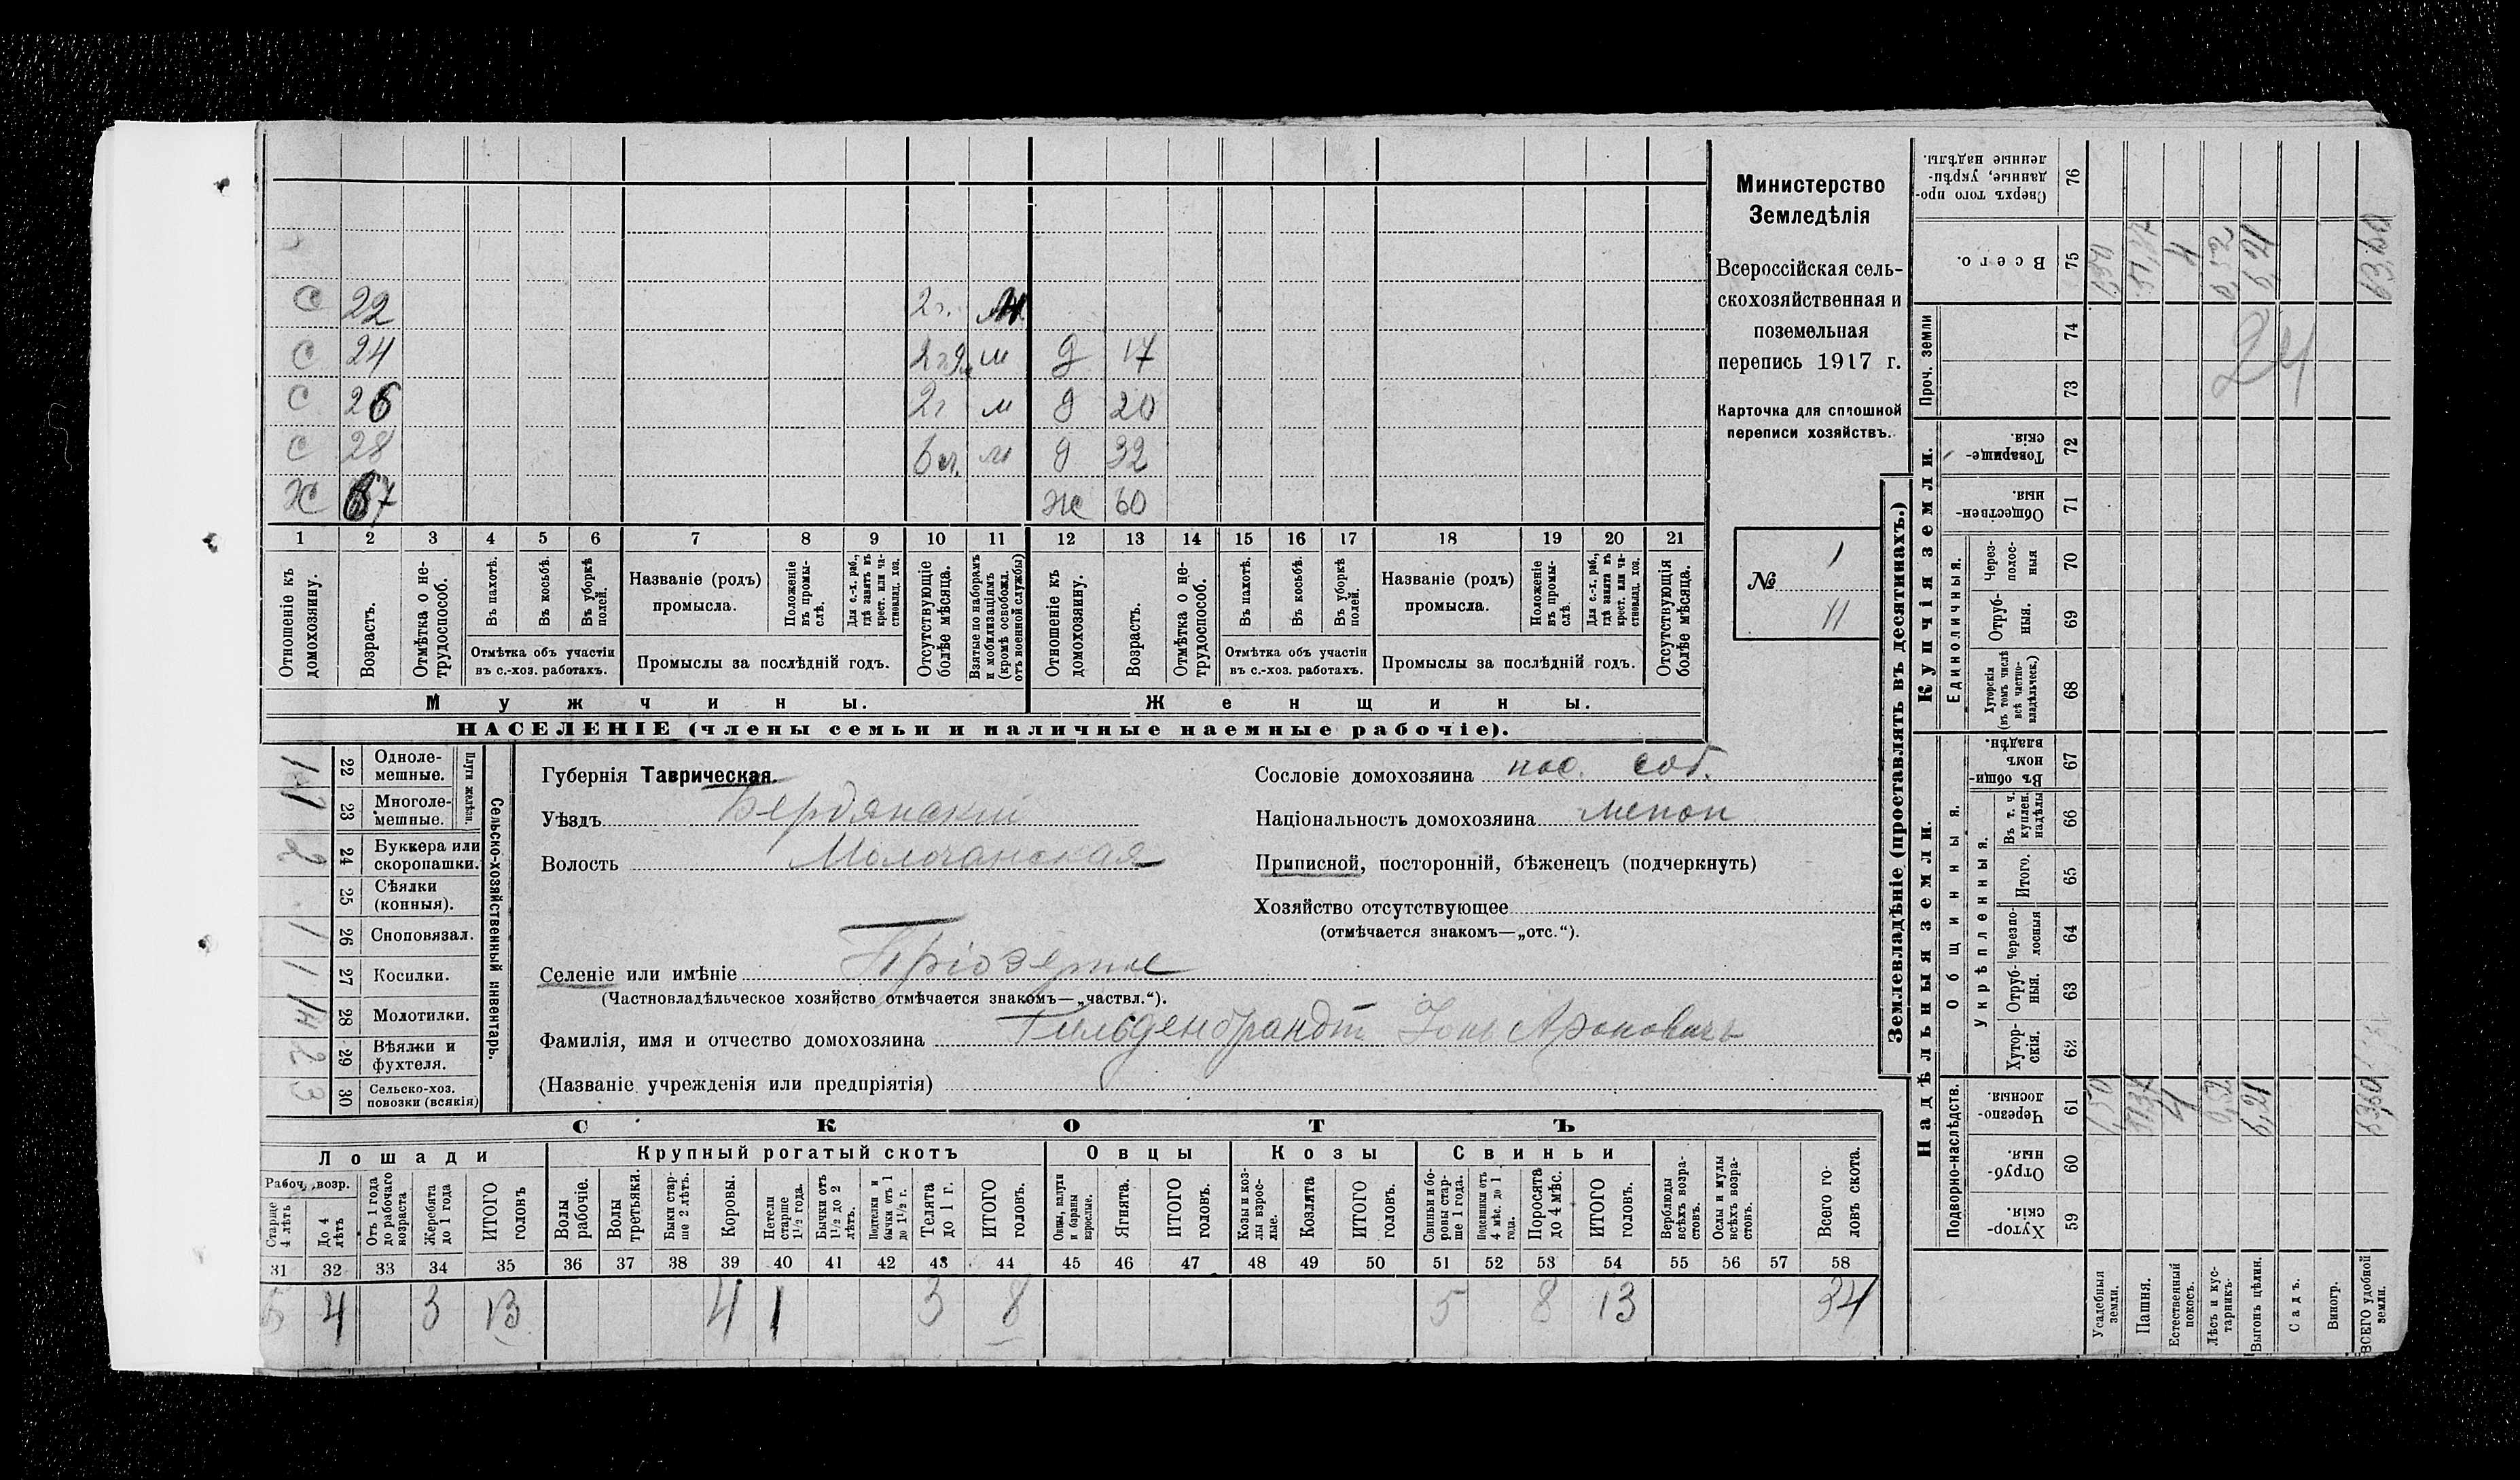 С 22 2 г. м
С 24 2 г 9 м м д 17
С 26 2 г м д 20
С 28 6 м. м д 32
Х 67 ж 60
1 2 3 4 5 6 7 8 9 10 11 12 13 14 15 16 17 18 19 20 21
Отношеніе къ домохозяину.
Возрастъ.
Отмѣтка о не-трудоспособ.
Въ пахотѣ.
Въ косьбѣ.
Въ уборкѣ полей.
Отмѣтка объ участіи въ с.-хоз. работахъ.
Названіе (родъ) промысла.
Положеніе въ промы-слѣ.
Для с.-х. раб., гдѣ занятъ въ крест. или ча-стновлад. хоз.
Промыслы за послѣдній годъ.
Отсутствующіе болѣе мѣсяца.
Взятые по наборамъ и мобилизаціямъ (кромѣ освобожд. отъ военной службы)
Отношеніе къ домохозяину.
Возрастъ.
Отмѣтка о не-трудоспособ.
Въ пахотѣ.
Въ косьбѣ.
Въ уборкѣ полей.
Отмѣтка объ участіи въ с.-хоз. работахъ.
Названіе (родъ) промысла.
Положеніе въ промы-слѣ.
Для с.-х. раб., гдѣ занята въ крест. или ча-стновлад. хоз.
Промыслы за послѣдній годъ.
Отсутствующія болѣе мѣсяца.
Мужчины. Женщины.
НАСЕЛЕНІЕ (члены семьи и наличные наемные рабочіе).
Министерство
Земледѣлія
Всероссійская сель-
скохозяйственная и
поземельная
перепись 1917 г.
Карточка для сплошной
переписи хозяйствъ.
№ 1
11
Сельско-хозяйственный инвентарь.
Плуги желѣзн.
22 Одноле-мешные. 1
23 Многоле-мешные. 1
24 Буккера или скоропашки. 2
25 Сѣялки (конныя).
26 Сноповязал. 1
27 Косилки. 1
28 Молотилки.
29 Вѣялки и фухтеля. 2
30 Сельско-хоз. повозки (всякія) 3
Губернія Таврическая.
Уѣздъ Бердянскій
Волость Молочанская
Селеніе или имѣніе Пріозерное
(Частновладѣльческое хозяйство отмѣчается знакомъ—„частвл.“).
Фамилія, имя и отчество домохозяина Гильденбрандт Іонъ Ароновичъ
(Названіе учрежденія или предпріятія)
Сословіе домохозяина пос. соб.
Національность домохозяина менон
Приписной, посторонній, бѣженецъ (подчеркнуть)
Хозяйство отсутствующее
(отмѣчается знакомъ—„отс.“).
СКОТЪ
Лошади Крупный рогатый скотъ Овцы Козы Свиньи
Рабоч. возр.
Старше 4 лѣтъ
До 4 лѣтъ
Отъ 1 года до рабочаго возраста
Жеребята до 1 года
ИТОГО головъ
Волы рабочіе.
Волы третьяки.
Быки стар-ше 2 лѣтъ.
Коровы.
Нетели старше 1½ года.
Бычки отъ 1½ до 2 лѣтъ.
Подтелки и бычки отъ 1 до 1½ г.
Телята до 1 г.
ИТОГО головъ.
Овцы, валухи и бараны взрослые.
Ягнята.
ИТОГО головъ.
Козы и коз-лы взрос-лые.
Козлята
ИТОГО головъ.
Свиньи и бо-ровы стар-ше 1 года.
Подсвинки отъ 4 мѣс. до 1 года.
Поросята до 4 мѣс.
ИТОГО головъ.
Верблюды всѣхъ возра-стовъ.
Ослы и мулы всѣхъ возра-стовъ.
Всего го-ловъ скота.
31 32 33 34 35 36 37 38 39 40 41 42 43 44 45 46 47 48 49 50 51 52 53 54 55 56 57 58
4 3 13 4 1 3 8 5 8 13 34
Землевладѣніе (проставлять въ десятинахъ.)
Купчія земли.
Надѣльныя земли.
Проч. земли
Единоличныя.
Общинныя.
Укрѣпленныя.
Подворно-наслѣдств.
Сверхъ того про-данные, укрѣп-ленные надѣлы. 76
Всего. 75
74
73
Товарище-скія. 72
Обществен-ныя. 71
Через-полос-ныя 70
Отруб-ныя. 69
Хуторскія (въ томъ числѣ всѣ частно-владѣльческ.) 68
Въ общин-номъ владѣн. 67
Въ т. ч. куплен. надѣлы 66
Итого. 65
Черезпо-лосныя 64
Отруб-ныя. 63
Хутор-скія. 62
Черезпо-лосныя. 61
Отруб-ныя. 60
Хутор-скія. 59
24
Усадебныя земли.
Пашня.
Естественный покосъ. 4 4
Лѣсъ и кус-тарникъ.
Выгонъ цѣлин. 6,21 6,21
Садъ.
Виногр.
ВСЕГО удобной земли. 63,60 63,60